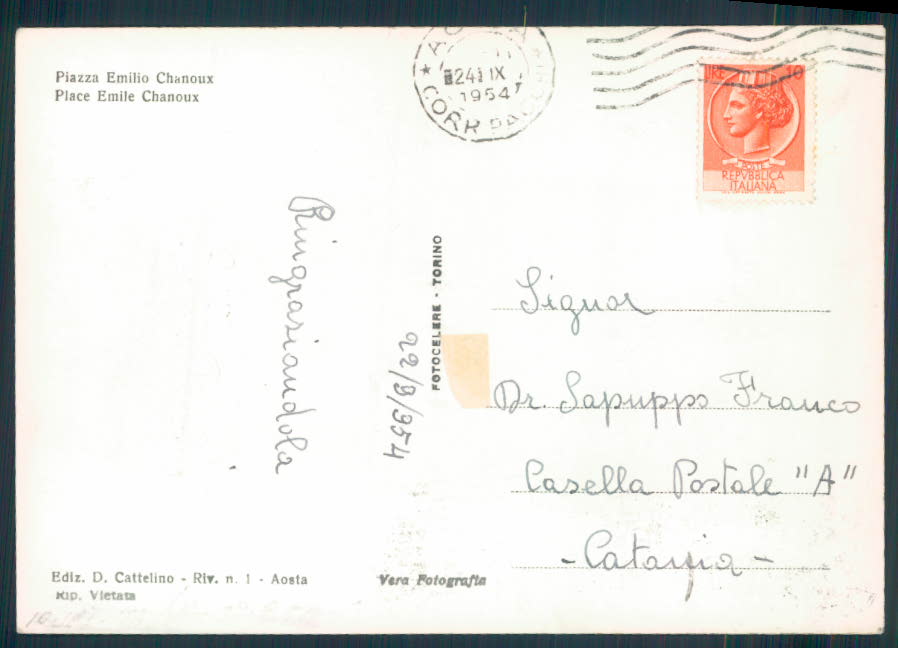 Piazza Emilio Chanoux
Place Emile Chanoux
24 IX
1954
CORR PACCHI
LIRE 10
POSTE
REPVBBLICA
ITALIANA
Ringraziandola
22/9/954
FOTOCELERE - TORINO
Signor
Dr. Sapuppo Franco
Casella Postale "A"
- Catania -
Ediz. D. Cattelino - Riv. n. 1 - Aosta
Rip. Vietata
Vera Fotografia